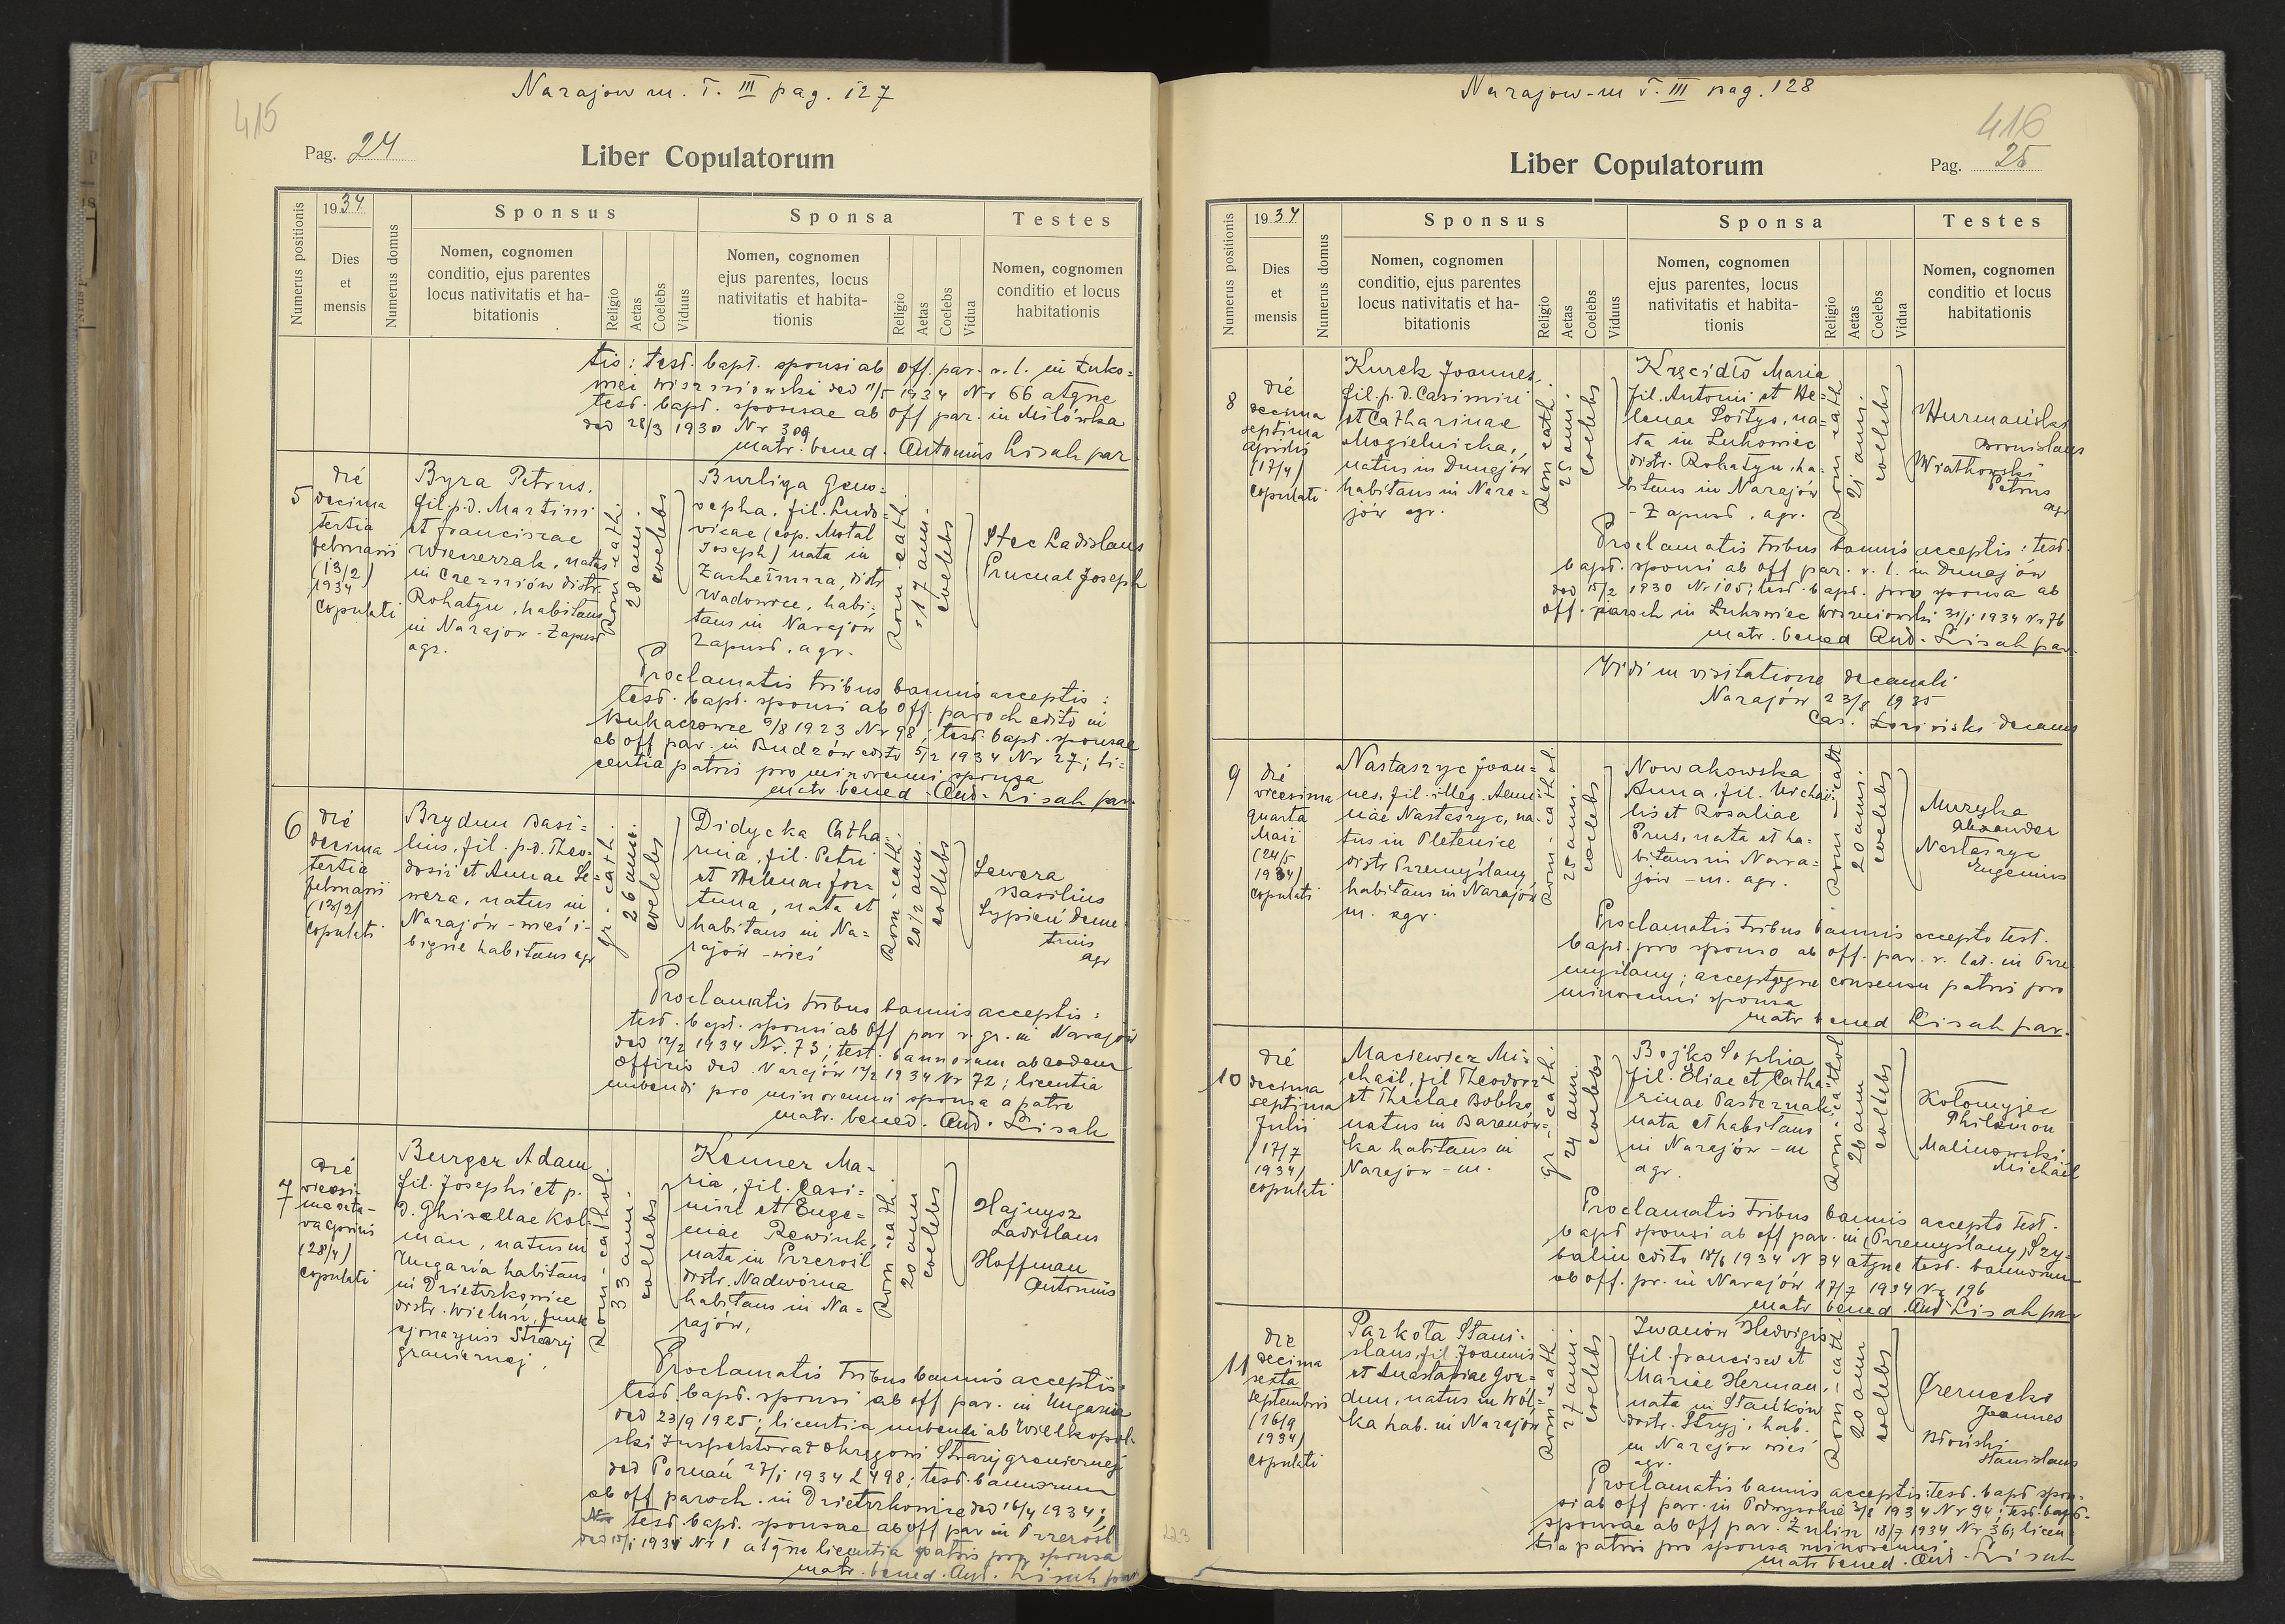 Narajow m. T. III pag. 127
415
Pag. 24
Liber Copulatorum
Numerus positionis
1934
Dies
et
mensis
Numerus domus
Sponsus
Nomen, cognomen
conditio, ejus parentes
locus nativitatis et ha-
bitationis
Religio
Aetas
Coelebs
Viduus
Sponsa
Nomen, cognomen
ejus parentes, locus
nativitatis et habita-
tionis
Religio
Aetas
Coelebs
Vidua
Testes
Nomen, cognomen
conditio et locus
habitationis
tis: test. bapt. sponsi ab off. par. r. l. in Łuko=
wiec wiszniowski ded 11/5 1934 Nr 66 atque
test. bapt. sponsae ab off par. in Milówka
ded 28/3 1930 Nr 309
matr. bened. Antonius Lisak par.
5
die
decima
tertia
februarii
(13/2)
1934
copulati
Byra Petrus,
fil. p.d. Martini
et Franciscae
Wieczerzak, natus
in Czerniów distr.
Rohatyn, habitans
in Narajow - Zapust
agr.
Rom. cath.
28 ann.
coelebs
Burliga Geno=
vepha, fil. Ludo=
vicae (cop. Motal
Joseph) nata in
Zachełmna, distr
Wadowice, habi=
tans in Narajów
Zapust, agr.
Rom. cath.
17 ann.
coelebs
Stec Ladislaus
Prucnal Joseph
Proclamatis tribus bannis acceptis:
test. bapt. sponsi ab off. paroch edito in
Bukaczowce 9/8 1923 Nr 98; test. bapt. sponsae
ab off par. in Budzów edito 5/2 1934 Nr 27; li=
centia patris pro minorenni sponsa
matr. bened. Ant. Lisak par.
6
die
decima
tertia
februarii
(13/2)
copulati
Brydun Basi=
lius, fil. p.d. Theo=
dosii et Annae Se=
wera, natus in
Narajów - wieś i-
bique habitans agr
gr. cath.
26 ann.
coelebs
Didycka Catha=
rina, fil. Petri
et Helenae For=
tuna, nata et
habitans in Na=
rajów - wieś
Rom. cath.
20 1/2 ann.
coelebs
Sewera
Basilius
Sypień Deme
trius
agr
Proclamatis tribus bannis acceptis:
test. bapt. sponsi ab off par r. gr. in Narajów
ded 12/2 1934 Nr. 73; test. bannorum ab eodem
officio ded. Narajów 12/2 1934 Nr 72; licentia
nubendi pro minorenni sponsa a patre
matr. bened. Ant. Lisak
7
die
vicesi-
ma octa-
va aprilis
(28/4)
copulati
Burger Adam
fil. Josephi et p.
d. Ghisellae Kol=
man, natus in
Ungaria habitans
in Dzietrzkowice
distr. Wieluń, funk
cjonariusz Straży
granicznej.
Rom. cathol.
33 ann.
coelebs
Kenner Ma=
ria, fil. Casi=
miri et Euge=
niae Rewink,
nata in Przerośl
distr. Nadwórna
habitans in Na=
rajów,
Rom. cath.
20 ann
coelebs
Hajnysz
Ladislaus
Hoffman
Antonius
Proclamatis tribus bannis acceptis:
test. bapt. sponsi ab off par. in Ungaria
ded 23/9 1925; licentia nubendi ab Wielkopol-
ski Inspektorat Okręgowi Straży granicznej
ded Poznań 27/1 1934 L 498; test. bannorum
ab off paroch. in Dzietrzkowice ded 16/4 1934;
test. bapt. sponsae ab off par in Przerośl
ded 15/1 1934 Nr 1 atque licentia patris pro sponsa
matr. bened. Ant. Lisak par
Narajow-m T. III pag. 128
416
Liber Copulatorum
Pag. 25
Numerus positionis
1934
Dies
et
mensis
Numerus domus
Sponsus
Nomen, cognomen
conditio, ejus parentes
locus nativitatis et ha-
bitationis
Religio
Aetas
Coelebs
Viduus
Sponsa
Nomen, cognomen
ejus parentes, locus
nativitatis et habita-
tionis
Religio
Aetas
Coelebs
Vidua
Testes
Nomen, cognomen
conditio et locus
habitationis
8
die
decima
septima
aprilis
(17/4)
copulati
Kurek Joannes,
fil. p. d. Casimiri
et Catharinae
Mogielnicka,
natus in Dunajów
habitans in Nara=
jów agr.
Rom cath.
25 ann.
coelebs
Krzcidło Maria
fil. Antoni et He=
lenae Sołtys, na=
ta in Łukowiec
distr. Rohatyn, ha=
bitans in Narajów
- Zapust, agr.
Rom cath
21 ann.
coelebs
Hurmański
Bronislaus
Wiatkowski
Petrus
agr
Proclamatis tribus bannis acceptis: test.
bapt. sponsi ab off par. r. l. in Dunajów
ded 15/2 1930 Nr 105; test. bapt. pro sponsa ab
off. paroch in Łukowiec Wiszniowski 31/1 1934 Nr 76
matr. bened Ant. Lisak par.
Vidi in visitatione decanali
Narajów 23/8 1935
Cas. decanus
9
die
vicesima
quarta
Maii
(24/5
1934)
copulati
Nastaszyc Joan=
nes, fil. illeg. Anni
nae Nastaszyc, na=
tus in Pletenice
distr Przemyślany
habitans in Narajów
m. agr.
Rom - cathol.
25 ann.
coelebs
Nowakowska
Anna, fil. Michae
lis et Rosaliae
Prus, nata et ha=
bitans in Nara=
jów - m. agr.
Rom - cath
20 ann.
coelebs
Muzyka
Alexander
Nastaszyc
Eugenius
Proclamatis tribus bannis accepto test.
bapt. pro sponso ab off. par. r. lat. in Prze
myślany; acceptoque consensu patris pro
minorenni sponsa
matr bened Lisak par.
10
die
decima
septima
Julii
17/7
1934)
copulati
Maciewicz Mi=
chail, fil Theodori
et Theclae Bobko
natus in Baranów=
ka habitans in
Narajow - m.
gr. cath.
24 ann.
coelebs
Bojko Sophia
fil. Eliae et Catha=
rinae Pasternak,
nata et habitans
in Narajów - m
agr.
Rom - cathol
26 ann
coelebs
Kołomyjec
Philemon
Malinowski
Michaël
Proclamatis tribus bannis accepto test.
bapt sponsi ab off par. in (Przemyślany) Szy=
balin edito 18/6 1934 N 34 atque test. bannorum
ab off. pr. in Narajów 17/7 1934 Nr 196
matr bened. Ant Lisak par
11
die
decima
sexta
septembris
(16/9
1934)
copulati
Parkota Stani-
slaus, fil. Joannis
et Anastasiae Gou=
dun, natus in Wól=
ka hab. in Narajów
Rom - cath.
27 ann.
coelebs
Iwanów Hedvigis
fil. Francisci et
Mariae Herman,
nata in Stańków
distr. Stryj, hab.
in Narajów wieś
agr.
Rom - cath
20 ann
coelebs
Joannes
Błoński
Stanislaus
Proclamatis bannis acceptis: test. bapt spon-
si ab off par. in Podwysokie 3/8 1934 Nr 94; test. bapt.
sponsae ab off par. Żulin 18/7 1934 Nr 36; licen=
tia patris pro sponsa minorenni
matr bened. Ant. Lisak
223